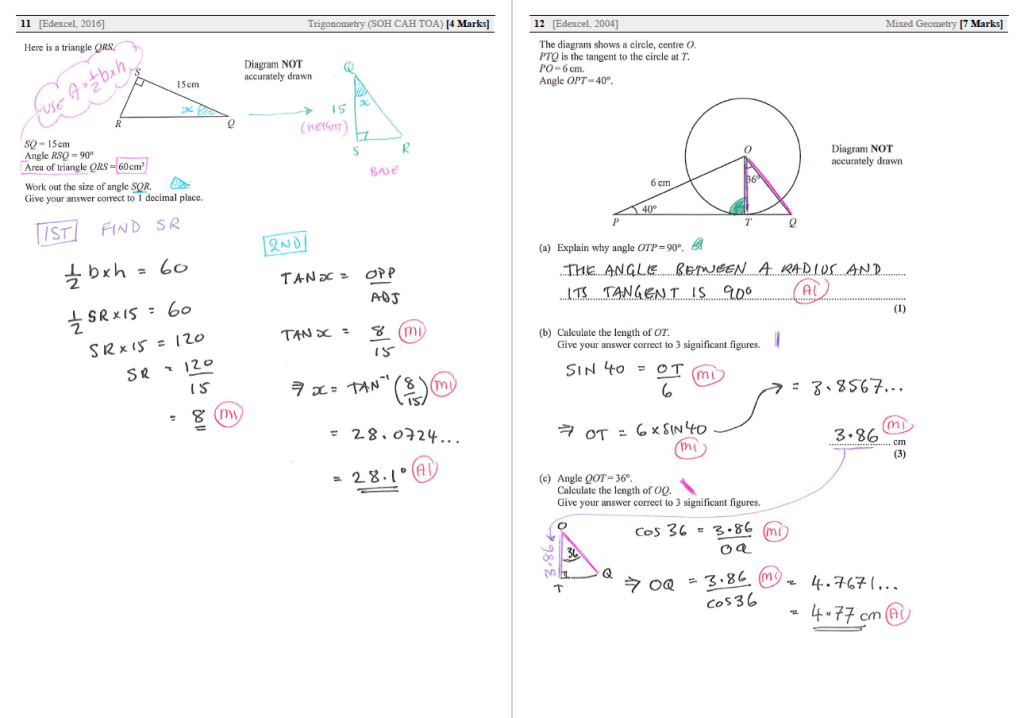 11 [Edexcel, 2016] Trigonometry (SOH CAH TOA) [4 Marks]
Here is a triangle QRS.
USE A = 1/2 b x h
S
15 cm
x
R
Q
Diagram NOT
accurately drawn
Q
15
x
(HEIGHT)
S
R
BASE
SQ = 15 cm
Angle RSQ = 90°
Area of triangle QRS = 60 cm²
Work out the size of angle SQR.
Give your answer correct to 1 decimal place.
1ST FIND SR
1/2 b x h = 60
1/2 SR x 15 = 60
SR x 15 = 120
SR = 120/15
= 8 M1
2ND
TAN x = OPP/ADJ
TAN x = 8/15 M1
⇒ x = TAN⁻¹ (8/15) M1
= 28.0724...
= 28.1° A1
12 [Edexcel, 2004] Mixed Geometry [7 Marks]
The diagram shows a circle, centre O.
PTQ is the tangent to the circle at T.
PO = 6 cm.
Angle OPT = 40°.
O
6 cm
36°
40°
P
T
Q
Diagram NOT
accurately drawn
(a) Explain why angle OTP = 90°.
THE ANGLE BETWEEN A RADIUS AND
ITS TANGENT IS 90° A1
(1)
(b) Calculate the length of OT.
Give your answer correct to 3 significant figures.
SIN 40 = OT/6 M1
⇒ OT = 6 x SIN 40
M1
= 3.8567...
3.86 M1
cm
(3)
(c) Angle QOT = 36°.
Calculate the length of OQ.
Give your answer correct to 3 significant figures.
O
3.86
36
T
Q
COS 36 = 3.86/OQ M1
⇒ OQ = 3.86/COS 36 M1 = 4.7671...
= 4.77 cm A1